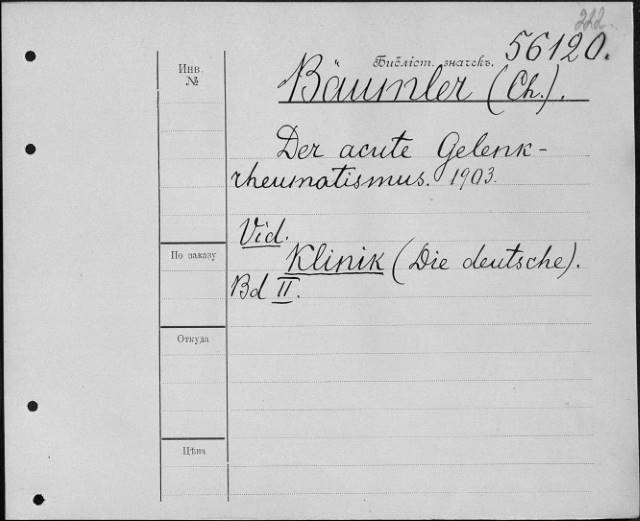 222.
Инв. №
Библіот. значекъ. 56120.
Bäumler (Ch.).
Der acute Gelenk-
rheumatismus. 1903.
Vid.
Klinik (Die deutsche).
Bd II.
По заказу
Откуда
Цѣна